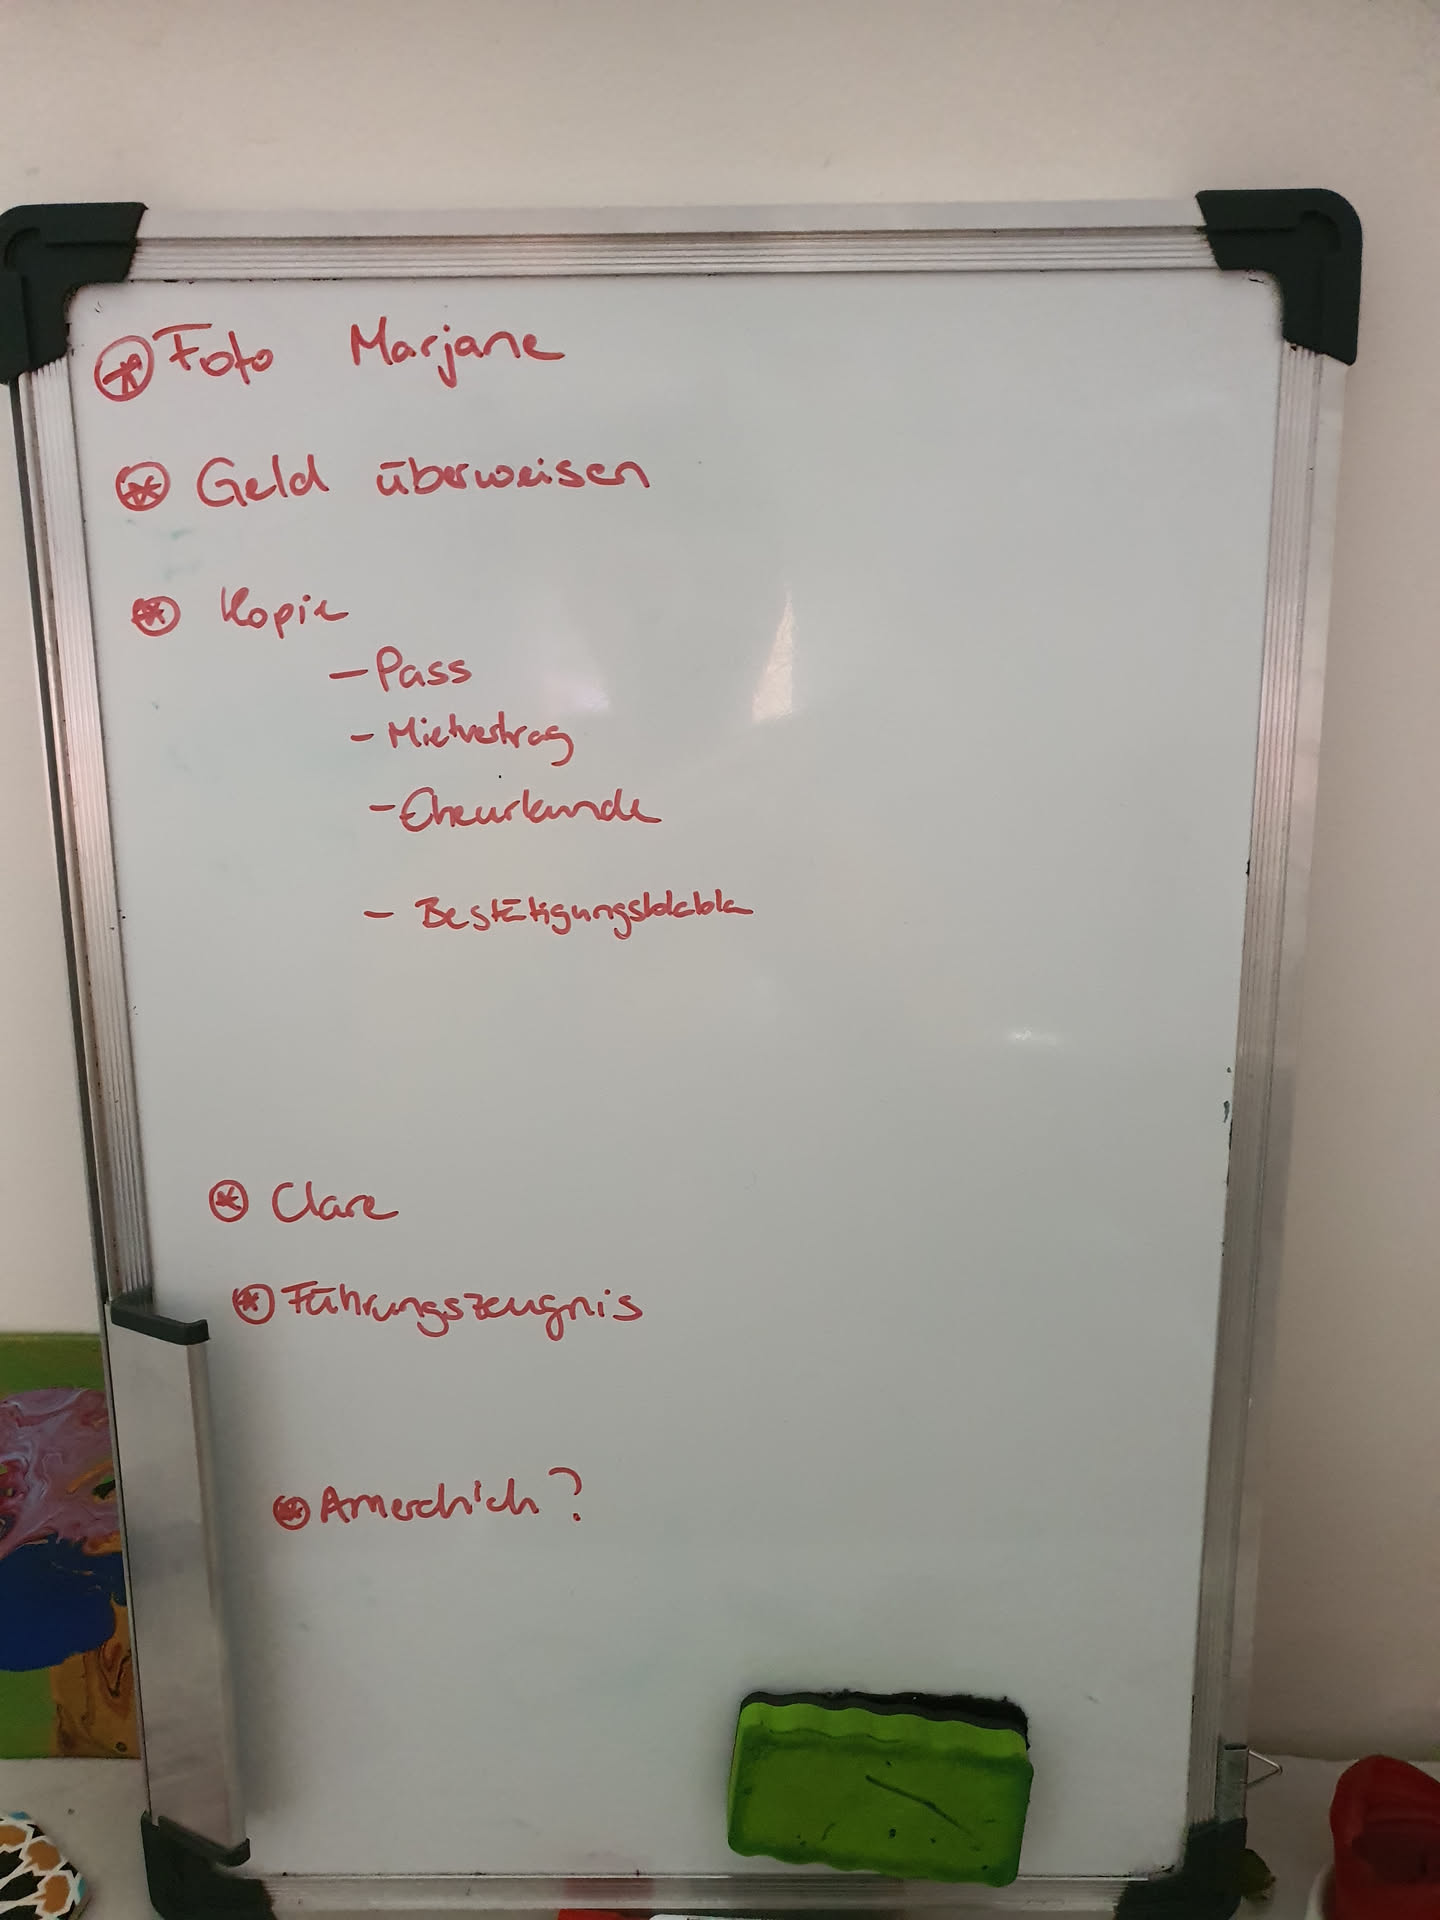 ⊛ Foto Marjane
⊛ Geld überweisen
⊛ Kopie
– Pass
– Mietvertrag
– Eheurkunde
– Bestätigungsblabla
⊛ Clare
⊛ Führungszeugnis
⊛ ?